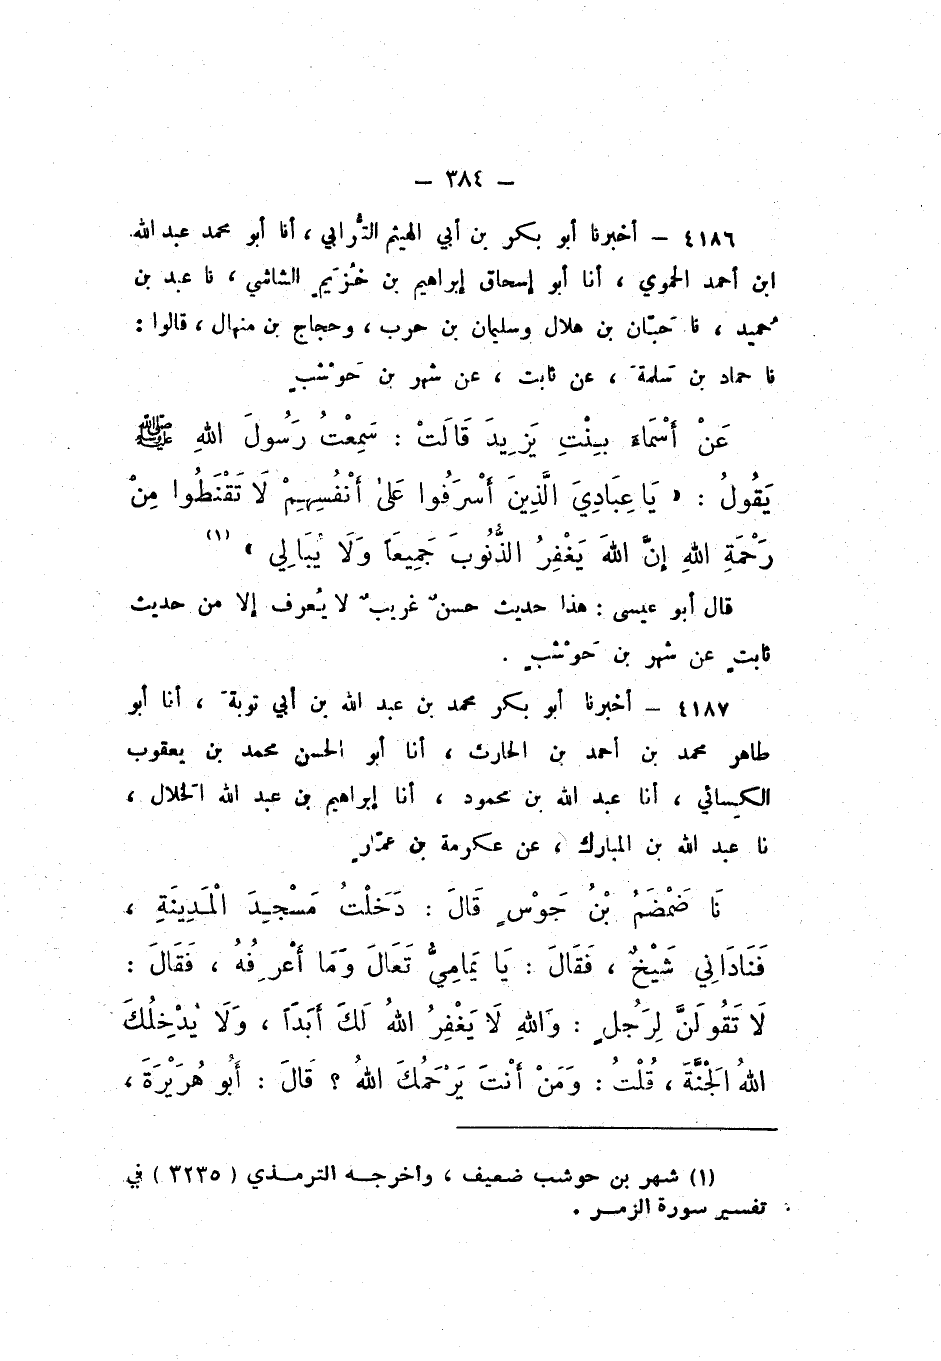 — ٣٨٤ —
٤١٨٦ — أخبرنا أبو بكر بن أبي الهيثم التُّرابي ، أنا أبو محمد عبد الله
ابن أحمد الحموي ، أنا أبو إسحاق إبراهيم بن خُزَيمٍ الشاشي ، نا عبد بن
حُميد ، نا حَبّان بن هلال وسليمان بن حرب ، وحجاج بن منهال ، قالوا :
نا حماد بن سَلمةَ ، عن ثابت ، عن شهر بن حَوْشَبٍ
عَنْ أَسْمَاءَ بِنْتِ يَزِيدَ قَالَتْ : سَمِعْتُ رَسُولَ اللهِ ﷺ
يَقُولُ : « يَا عِبَادِيَ الَّذِينَ أَسْرَفُوا عَلَىٰ أَنْفُسِهِمْ لَا تَقْنَطُوا مِنْ
رَحْمَةِ اللهِ إِنَّ اللهَ يَغْفِرُ الذُّنُوبَ جَمِيعَاً وَلَا يُبَالِي » (١)
قال أبو عيسى : هذا حديث حسنٌ غريبٌ لا يُعرف إلا من حديث
ثابتٍ عن شهر بن حَوْشَبٍ .
٤١٨٧ — أخبرنا أبو بكر محمد بن عبد الله بن أبي توبةَ ، أنا أبو
طاهر محمد بن أحمد بن الحارث ، أنا أبو الحسن محمد بن يعقوب
الكسائي ، أنا عبد الله بن محمود ، أنا إبراهيم بن عبد الله الخَلال ،
نا عبد الله بن المبارك ، عن عكرمة بن عمّارٍ
نَا ضَمْضَمُ بْنُ جَوْسٍ قَالَ : دَخَلْتُ مَسْجِدَ الْمَدِينَةِ ،
فَنَادَانِي شَيْخٌ ، فَقَالَ : يَا يَمَامِيُّ تَعَالَ وَمَا أَعْرِفُهُ ، فَقَالَ :
لَا تَقُولَنَّ لِرَجُلٍ : وَاللهِ لَا يَغْفِرُ اللهُ لَكَ أَبَدَاً ، وَلَا يُدْخِلُكَ
اللهُ الْجَنَّةَ ، قُلْتُ : وَمَنْ أَنْتَ يَرْحَمُكَ اللهُ ؟ قَالَ : أَبُو هُرَيْرَةَ ،
(١) شهر بن حوشب ضعيف ، وأخرجه الترمذي ( ٣٢٣٥ ) في
تفسير سورة الزمر .